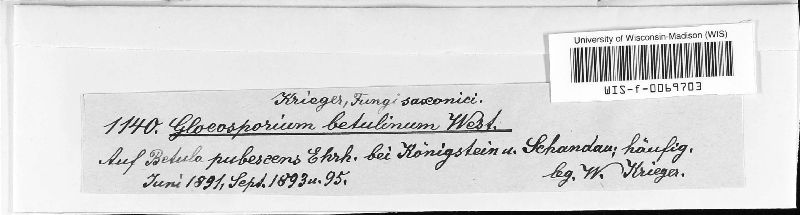 University of Wisconsin-Madison (WIS)
WIS-f-0069703
Krieger, Fungi saxonici.
1140. Gloeosporium betulinum West.
Auf Betula pubescens Ehrh. bei Königstein u. Schandau, häufig.
Juni 1891, Sept. 1893 u. 95. leg. W. Krieger.